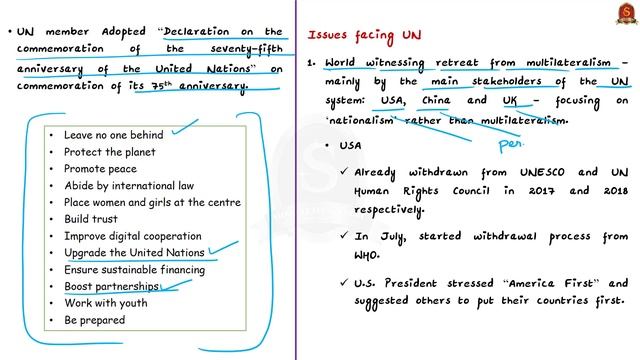 • UN member Adopted "Declaration on the
commemoration of the seventy-fifth
anniversary of the United Nations" on
commemoration of its 75th anniversary.
• Leave no one behind
• Protect the planet
• Promote peace
• Abide by international law
• Place women and girls at the centre
• Build trust
• Improve digital cooperation
• Upgrade the United Nations
• Ensure sustainable financing
• Boost partnerships
• Work with youth
• Be prepared
Issues facing UN
1. World witnessing retreat from multilateralism –
mainly by the main stakeholders of the UN
system: USA, China and UK – focusing on
'nationalism' rather than multilateralism.
per
• USA
✓ Already withdrawn from UNESCO and UN
Human Rights Council in 2017 and 2018
respectively.
✓ In July, started withdrawal process from
WHO.
✓ U.S. President stressed "America First" and
suggested others to put their countries first.